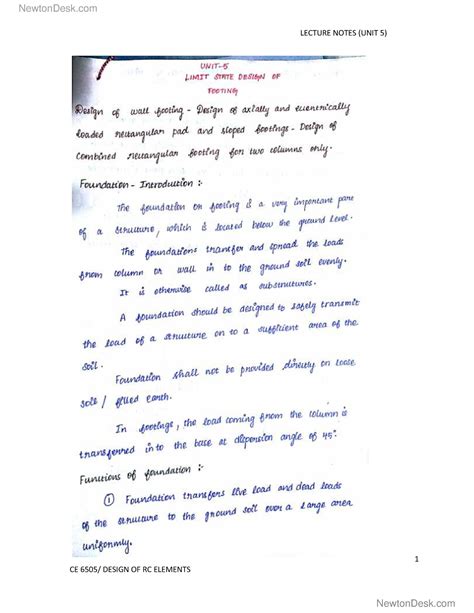 NewtonDesk.com
LECTURE NOTES (UNIT 5)
UNIT-5
LIMIT STATE DESIGN OF
FOOTING
Design of wall footing - Design of axially and eccentrically
loaded rectangular pad and sloped footings - Design of
combined rectangular footing for two columns only.
Foundation - Introduction :-
The foundation or footing is a very important part
of a structure, which is located below the ground level.
The foundations transfer and spread the loads
from column or wall in to the ground soil evenly.
It is otherwise called as substructures.
A foundation should be designed to safely transmit
the load of a structure on to a sufficient area of the
soil.
Foundation shall not be provided directly on loose
soil / filled earth.
In footings, the load coming from the column is
transferred into the base at dispersion angle of 45°.
Functions of foundation :-
① Foundation transfers live load and dead loads
of the structure to the ground soil over a large area
uniformly.
1
CE 6505/ DESIGN OF RC ELEMENTS
NewtonDesk.com